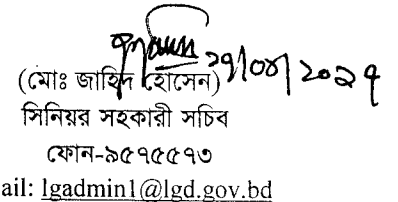 ২৭/০৪/২০২৭
(মোঃ জাহিদ হোসেন)
সিনিয়র সহকারী সচিব
ফোন-৯৫৭৫৫৭৩
ail: lgadmin1@lgd.gov.bd